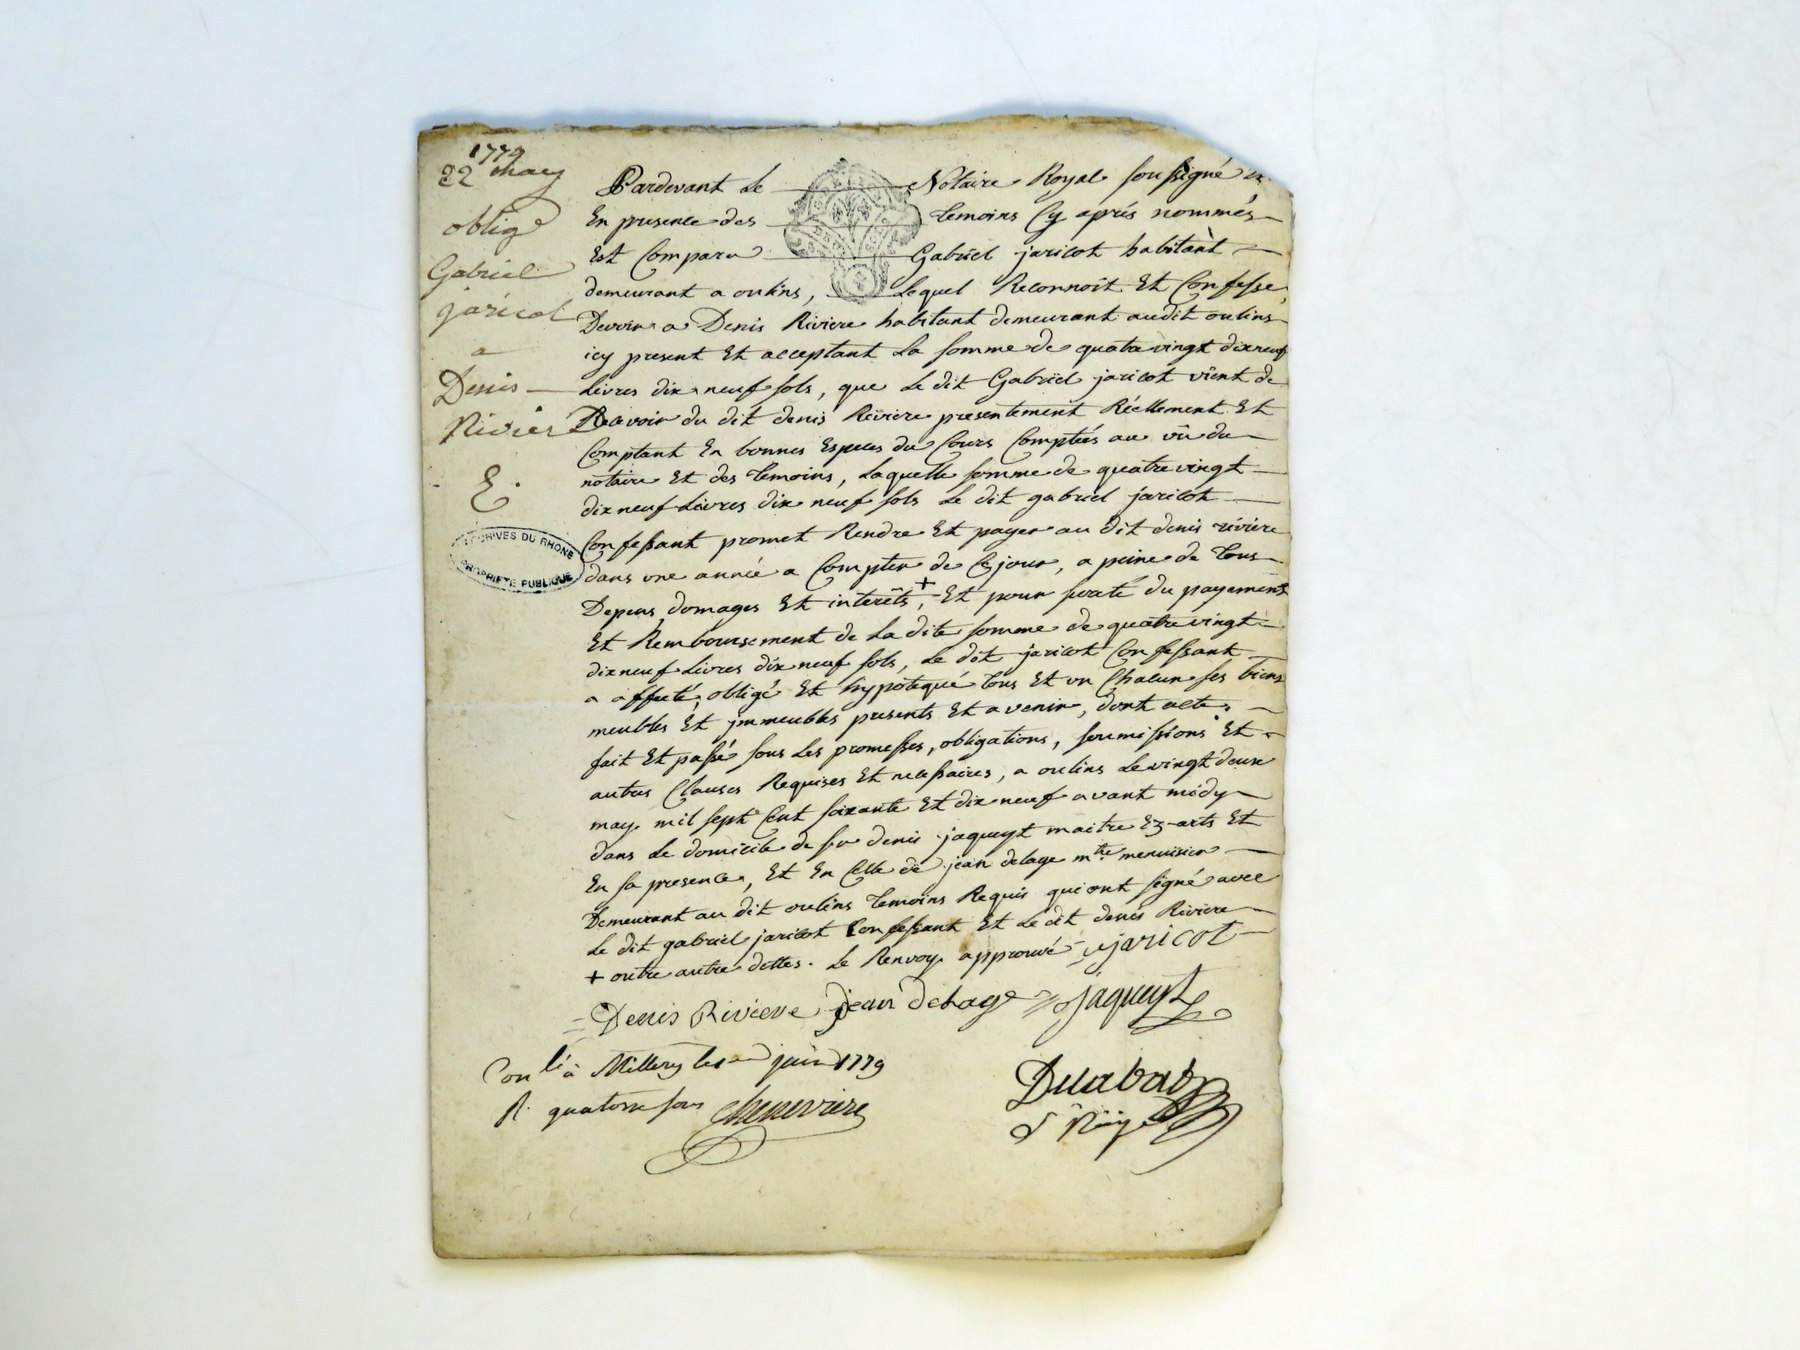 1779
22 may
oblig
Gabriel
jaricot
a
Denis
Rivier
E.
ARCHIVES DU RHONE
PROPRIETE PUBLIQUE
Pardevant Le Notaire Royal soussigné et
En presence des temoins Cy aprés nommés
Est Comparu Gabriel jaricot habitant
demeurant a oulins, Lequel Reconnoit Et Confesse
Devoir a Denis Riviere habitant demeurant audit oulins
icy present Et acceptant La somme de quatre vingt dix neuf
Livres dix neuf sols, que Le dit Gabriel jaricot vient de
Recevoir du dit denis Riviere presentement Réellement Et
Comptant En bonnes Especes du Cours Comptées au vû du
notaire Et des temoins, Laquelle somme de quatre vingt
dix neuf Livres dix neuf sols Le dit gabriel jaricot
Confessant promet Rendre Et payer au dit denis riviere
dans une année a Compter de Ce jour, a peine de tous
Depens domages Et interêts, + Et pour sureté du payement
Et Remboursement de La dite somme de quatre vingt
dix neuf Livres dix neuf sols, Le dit jaricot Confessant
a affecté, obligé Et hypotequé tous Et un Chacun ses biens
meubles Et jmmeubles presents Et avenir, dont acte,
fait Et passé sous Les promesses, obligations, soumissions Et
autres Clauses Requises Et necessaires, a oulins Le vingt deux
may mil sept Cent soixante Et dix neuf avant midy
dans Le domicile de sr denis jaqueyt maitre Ez arts Et
En sa presence, Et En Celle de jean delage mtre menuisier
Demeurant au dit oulins temoins Requis qui ont signé avec
Le dit gabriel jaricot Confessant Et Le dit denis Riviere
+ outre autre dettes. Le Renvoy approuvé jaricot
Denis Riviere jean delage Jaqueyt
Conlé à Millery le juin 1779
R. quatorze sous cheneviere